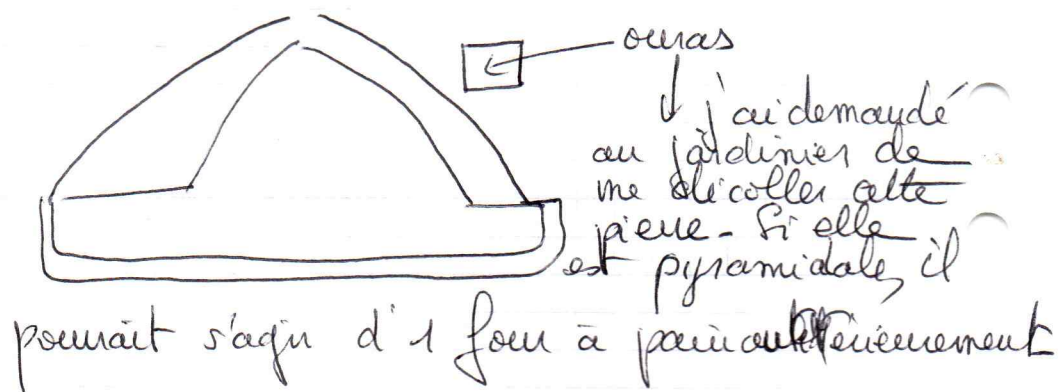 ouras
j'ai demandé
au jardinier de
me décoller cette
pierre - Si elle
est pyramidale, il
pourrait s'agir d'1 four à pain antérieurement